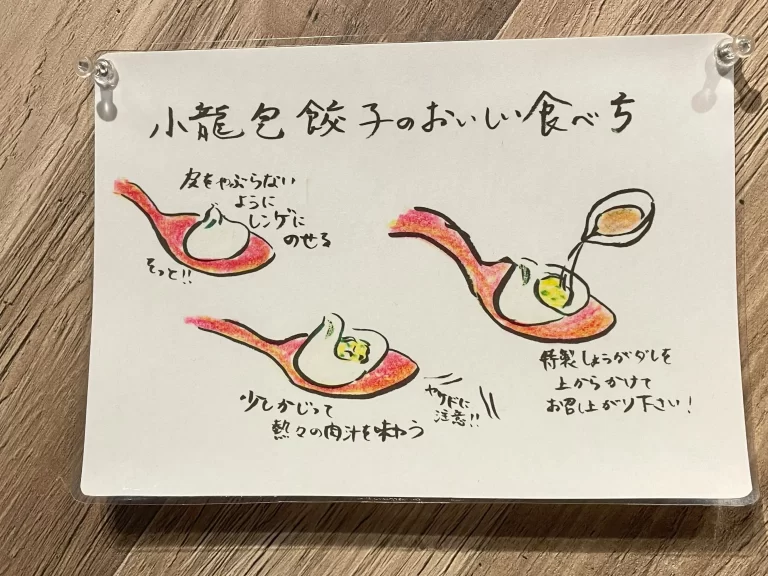 小龍包餃子のおいしい食べ方
皮をやぶらない
ように
レンゲに
のせる
そっと!!
少しかじって
熱々の肉汁を味わう
ヤケドに
注意!!
特製しょうがダレを
上からかけて
お召し上がり下さい!